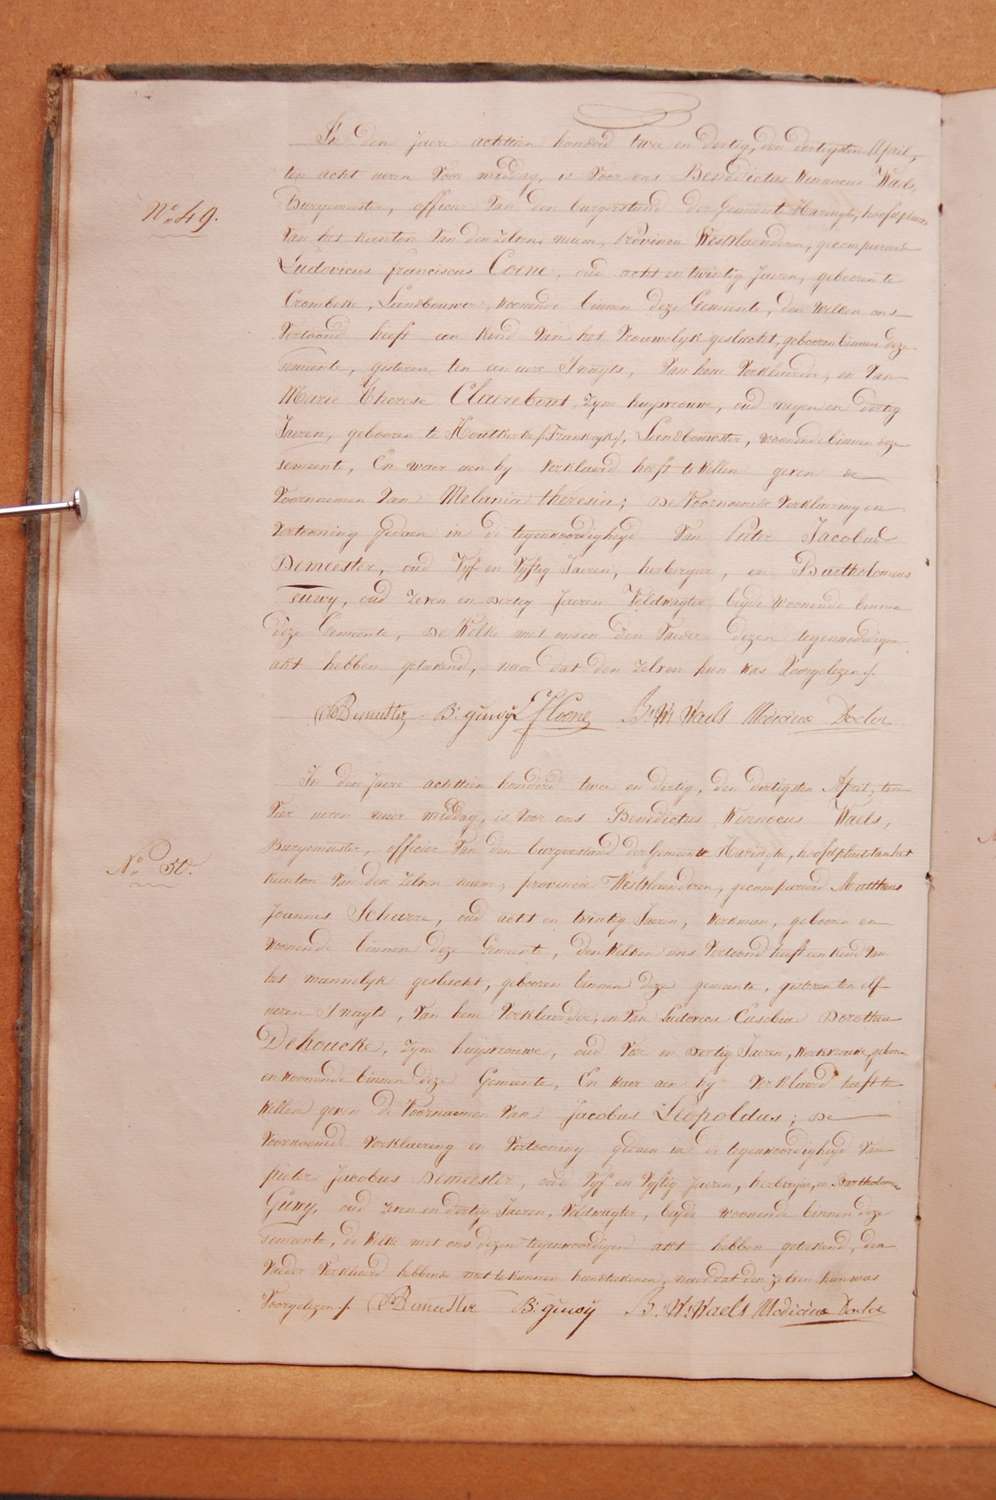 In den Jaere achttien honderd twee en dertig, den dertigsten April,
ten acht uren voor middag, is voor ons Benedictus Winnocus Waels,
No. 49.
Burgemeester, officier van den burgerstand der Gemeente Haringhe, hoofdplaets
van het kanton van den zelven naem, provincie Westvlaenderen, gecompareerd
Ludovicus franciscus Coene, oud acht en twintig Jaeren, gebooren te
Crombeke, Landbouwer, woonende binnen deze Gemeente, den welken ons
vertoond heeft een kind van het vrouwelyk geslacht, gebooren binnen deze
Gemeente, gisteren ten een ure s'nagts, van hem verklaerder, en van
Marie Therese Clairebout, zyne huysvrouwe, oud negen en dertig
Jaeren, gebooren te Houtkerke /Frankryk/, Landbouwster, woonende binnen deze
Gemeente, En waer aen hy verklaerd heeft te willen geven de
voornaemen van Melania Theresia; De voornoemde verklaering en
vertooning gedaen in de tegenwoordigheyd van Pieter Jacobus
Demeester, oud vyf en vyftig Jaeren, herbergier, en Bartholomeus
Guwy, oud zeven en dertig Jaeren Veldwagter, beyde woonende binnen
deze Gemeente, De Welke met ons en den Vaeder dezen tegenwoordigen
akt hebben geteekend, naer dat den zelven hun was voorgelezen /.
PJ Demeester B: guwÿ L f Coene B: W: Waels Medicine Doctor
In den Jaere achttien honderd twee en dertig, den dertigsten April, ten
vier uren naer middag, is voor ons Benedictus Winnocus Waels,
No. 50.
Burgemeester, officier van den burgerstand der Gemeente Haringhe, hoofdplaets van het
kanton van den zelven naem, provincie Westvlaenderen, gecompareerd Mattheus
Joannes Scheere, oud acht en twintig Jaeren, werkman, gebooren en
woonende binnen deze Gemeente, den welken ons vertoond heeft een kind van
het mannelyk geslacht, gebooren binnen deze gemeente, gisteren ten elf
uren s'nagts, van hem verklaerder, en van Ludovica Eusebia Dorothea
Dehoucke, zyne huysvrouwe, oud vier en dertig Jaeren, werkvrouwe, gebooren
en woonende binnen deze Gemeente, En waer aen hy verklaerd heeft te
willen geven de voornaemen van Jacobus Leopoldus; De
voornoemde verklaering en vertooning gedaen in de tegenwoordigheyd van
pieter Jacobus Demeester, oud vyf en vyftig Jaeren, herbergier, en Bartholomeus
Guwy, oud zeven en dertig Jaeren, Veldwagter, beyde woonende binnen deze
Gemeente, de welke met ons dezen tegenwoordigen akt hebben geteekend, den
Vaeder verklaerd hebbende niet te kunnen handteekenen, naer dat den zelven hun was
voorgelezen /. PJ Demeester B: guwÿ B: W: Waels Medicine Doctor